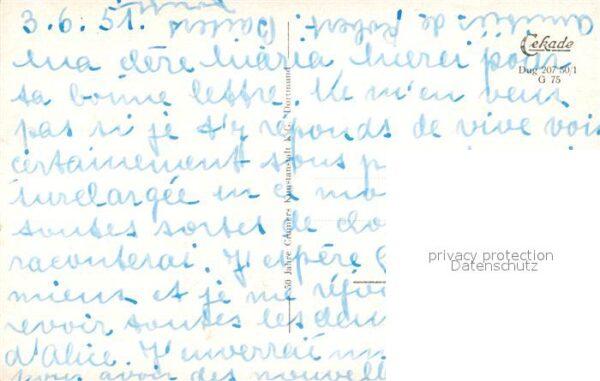 3.6.51.
Amitiés de Robert
Ma chère Maria Merci pour
ta bonne lettre. Ne m'en veux
pas si je t'y réponds de vive voix
certainement sous p
surchargée en ce mo
toutes sortes de cho
raconterai. J'espère
mieux et je me réjou
revoir toutes les deux
d'Alice. J'enverrai
pour avoir des nouvelle
Cekade
Dug 207 50/1
G 75
50 Jahre Cramers Kunstanstalt K.G. Dortmund
privacy protection
Datenschutz